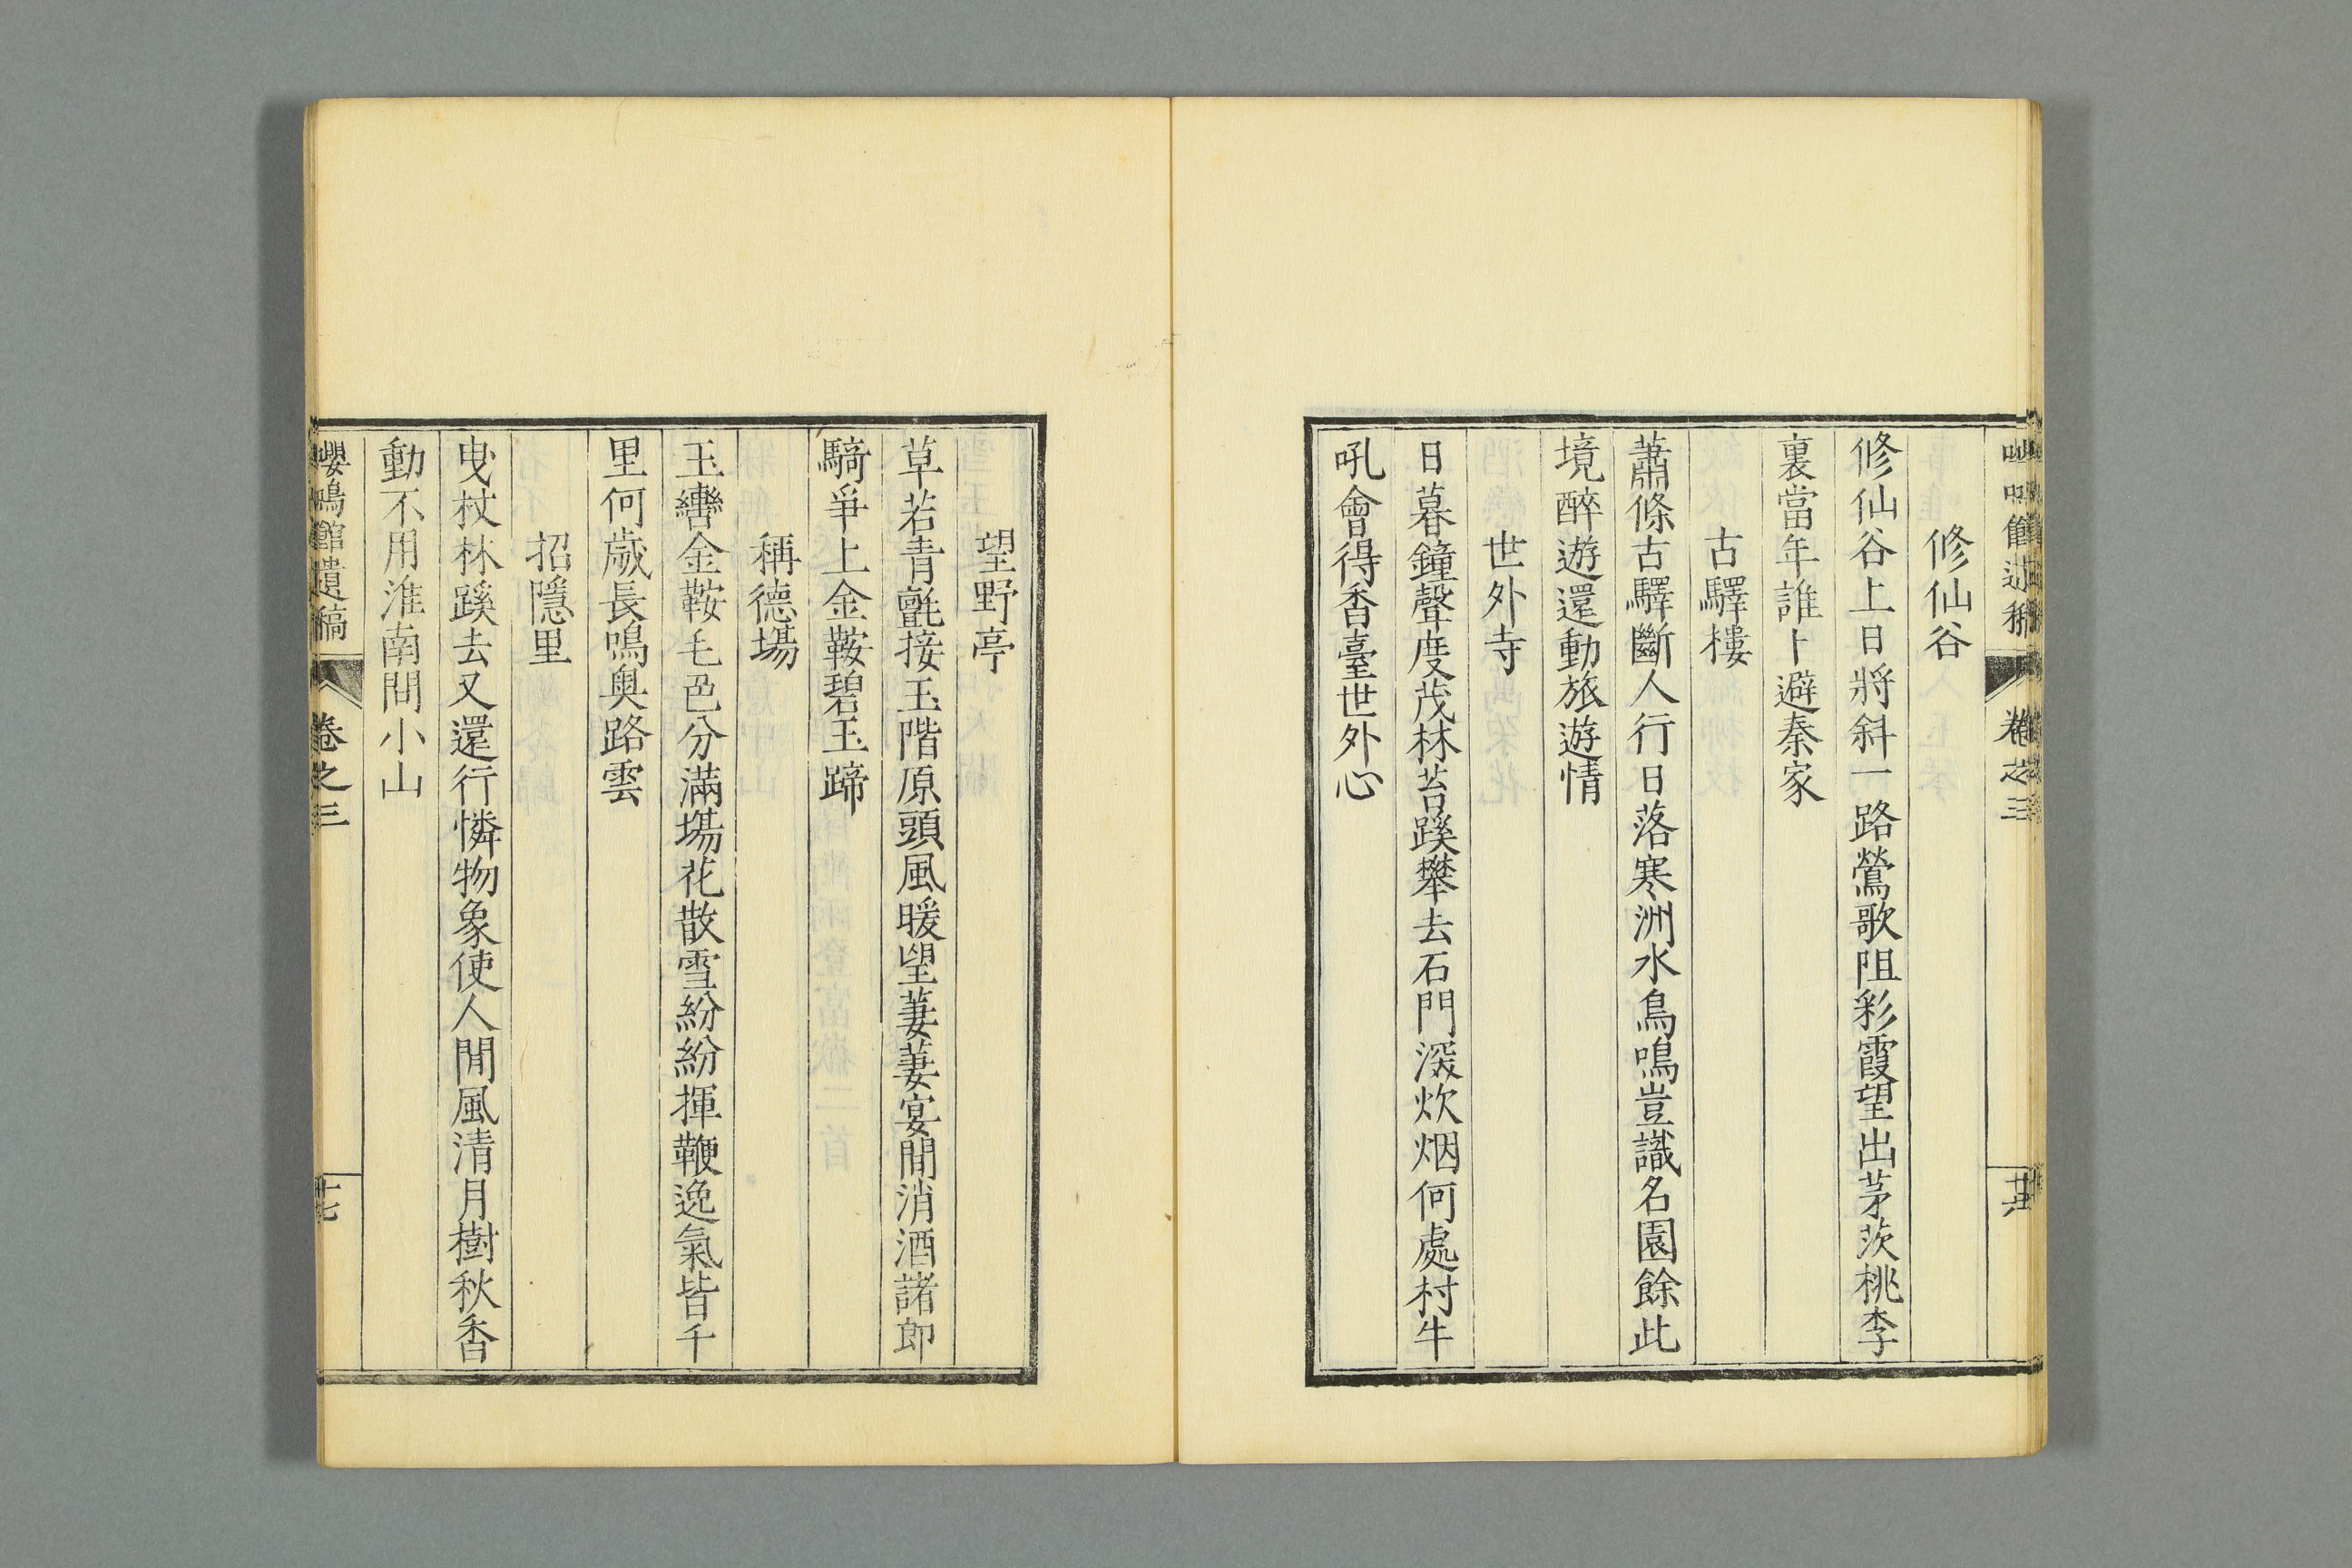 修仙谷
修仙谷上日將斜一路鶯歌阻彩霞望出茅茨桃李
裏當年誰卜避秦家
古驛樓
蕭條古驛斷人行日落寒洲水鳥鳴豈識名園餘此
境醉遊還動旅遊情
世外寺
日暮鐘聲度茂林苔蹊攀去石門深炊烟何處村牛
吼會得香臺世外心
望野亭
草若青氈接玉階原頭風暖望萋萋宴閒消酒諸郎
騎爭上金鞍碧玉蹄
稱德場
玉轡金鞍毛色分滿場花散雪紛紛揮鞭逸氣皆千
里何歲長鳴輿路雲
招隱里
曳杖林蹊去又還行憐物象使人閒風清月樹秋香
動不用淮南問小山
嚶鳴館遺稿
卷之三